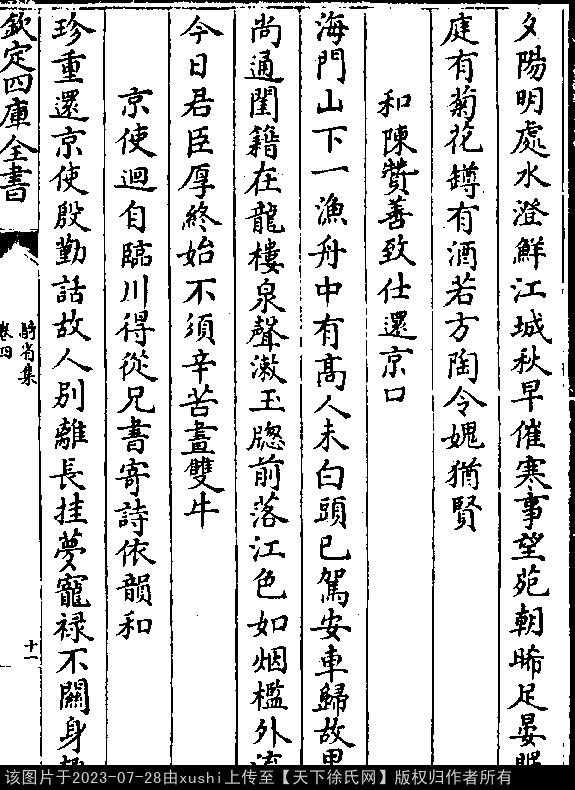 夕陽明處水澄鮮江城秋早催寒事望苑朝晞足晏眠
庭有菊花罇有酒若方陶令媿猶賢
和陳贊善致仕還京口
海門山下一漁舟中有髙人未白頭已駕安車歸故里
尚通閨籍在龍樓泉聲漱玉牕前落江色如烟檻外流
今日君臣厚終始不須辛苦畫雙牛
京使迴自臨川得從兄書寄詩依韻和
珍重還京使殷勤話故人别離長挂夢寵禄不闗身
欽定四庫全書
騎省集
卷四
十一
该图片于2023-07-28由xushi上传至【天下徐氏网】版权归作者所有